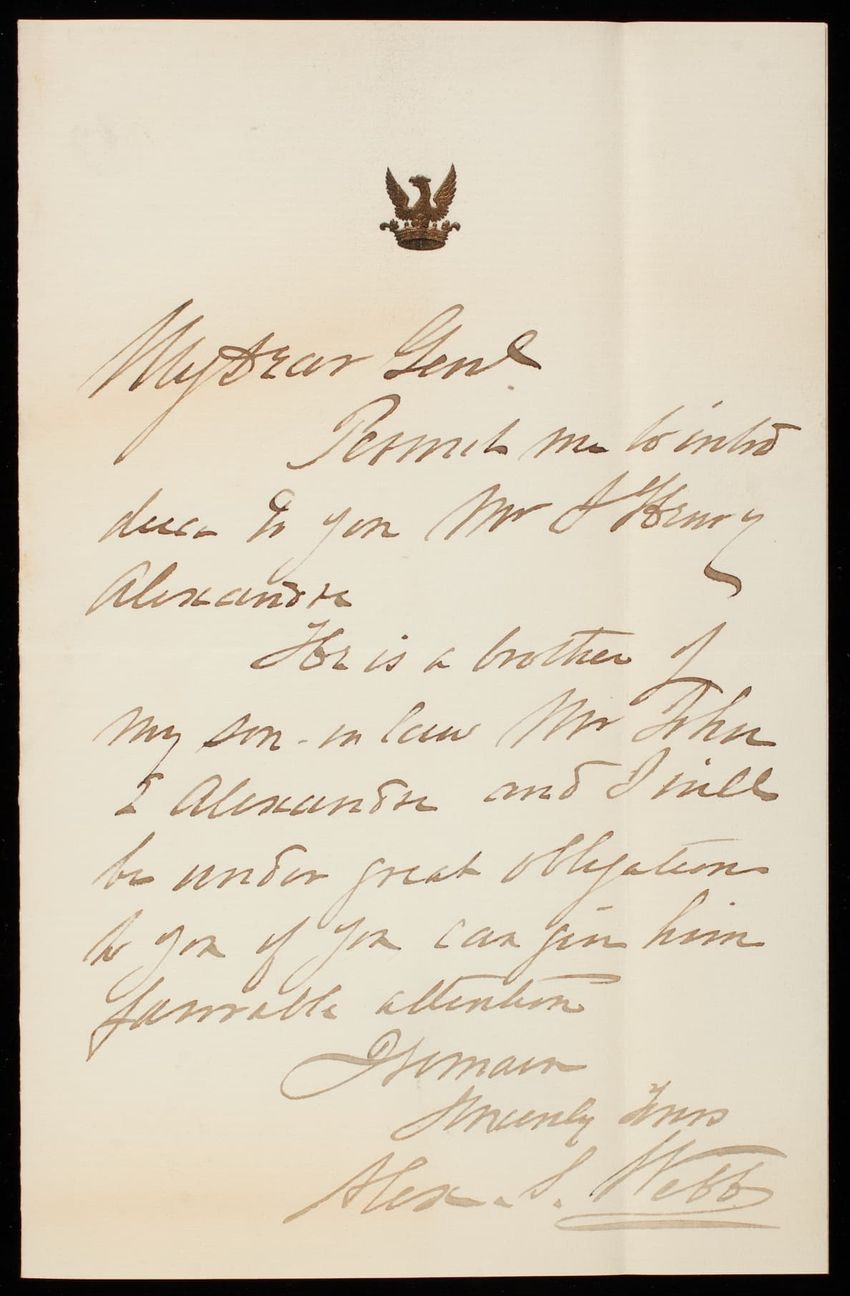 My dear Genl
Permit me to intro
duce to you Mr J Henry
Alexandre
He is a brother of
my son-in law Mr John
E Alexandre and I will
be under great obligations
to you if you can give him
favorable attention
I remain
Sincerely Yours
Alex. S. Webb